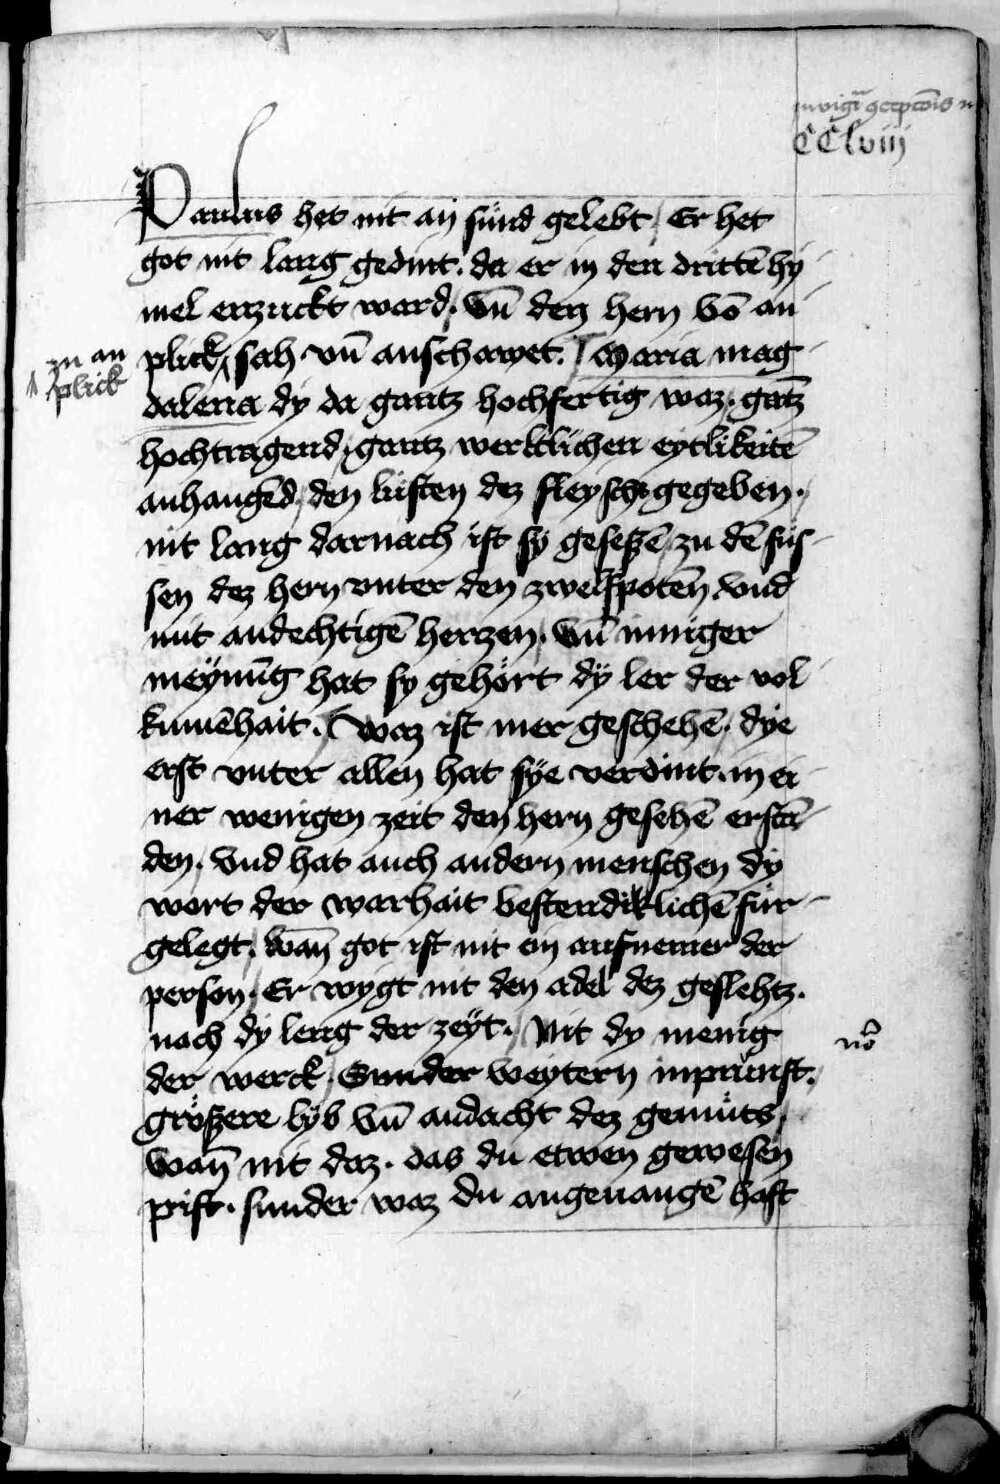 CClviii
Paulus het nit an sünd gelebt / Er het
got nit lang gedint. da er in den drittē hy¬
mel erzuckt ward / vn̄ den hern vō an¬
plick / sah vn̄ anschawet. / Maria mag¬
zu an
plick
dalena dy da gantz hochfertig waz. gātz
hochtragend / gantz werltlichen eytlikeitē
anhangēd / den lüsten dez fleysch gegeben.
nit lang darnach ist sy gesessē zu dē füs¬
sen dez hern vnter den zwelfpoten vnd
mit andechtigē hertzen / vn̄ inniger
meynūg hat sy gehört dy ler der vol¬
kumēhait. / Waz ist mer geschehē / dye
erst vnter allen hat sye verdint. in ei¬
ner wenigen zeit den hern gesehē erstā¬
den / vnd hat auch andern menschen dy
wort der warhait bestendiklichē für¬
gelegt / wan̄ got ist nit ein aufnemer der
person / Er wygt nit den adel dez geslehtz.
noch dy leng der zeyt. / Nit dy menig
nō
der werck / Sunder weytern inprünst.
größere lyb vn̄ andacht dez gemüts /
wan̄ nit daz. das du etwen gewesen
pist. sunder waz du angeuangē hast